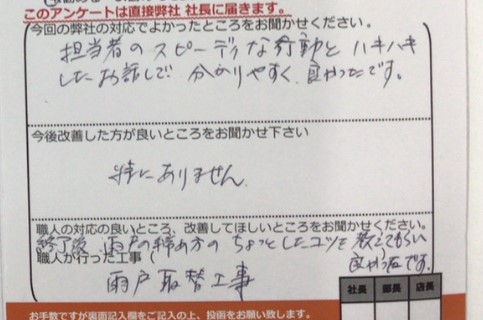 このアンケートは直接弊社 社長に届きます。
今回の弊社の対応でよかったところをお聞かせください。
担当者のスピーディな行動とハキハキ
したお話しで 分かりやすく、良かったです。
今後改善した方が良いところをお聞かせ下さい
特にありません。
職人の対応の良いところ、改善してほしいところをお聞かせください。
終了後、雨戸の締め方のちょっとしたコツを教えてもらい
良かったです。
職人が行った工事（
雨戸取替工事
社長 部長 店長
お手数ですが裏面記入欄をご記入の上、投函をお願い致します。